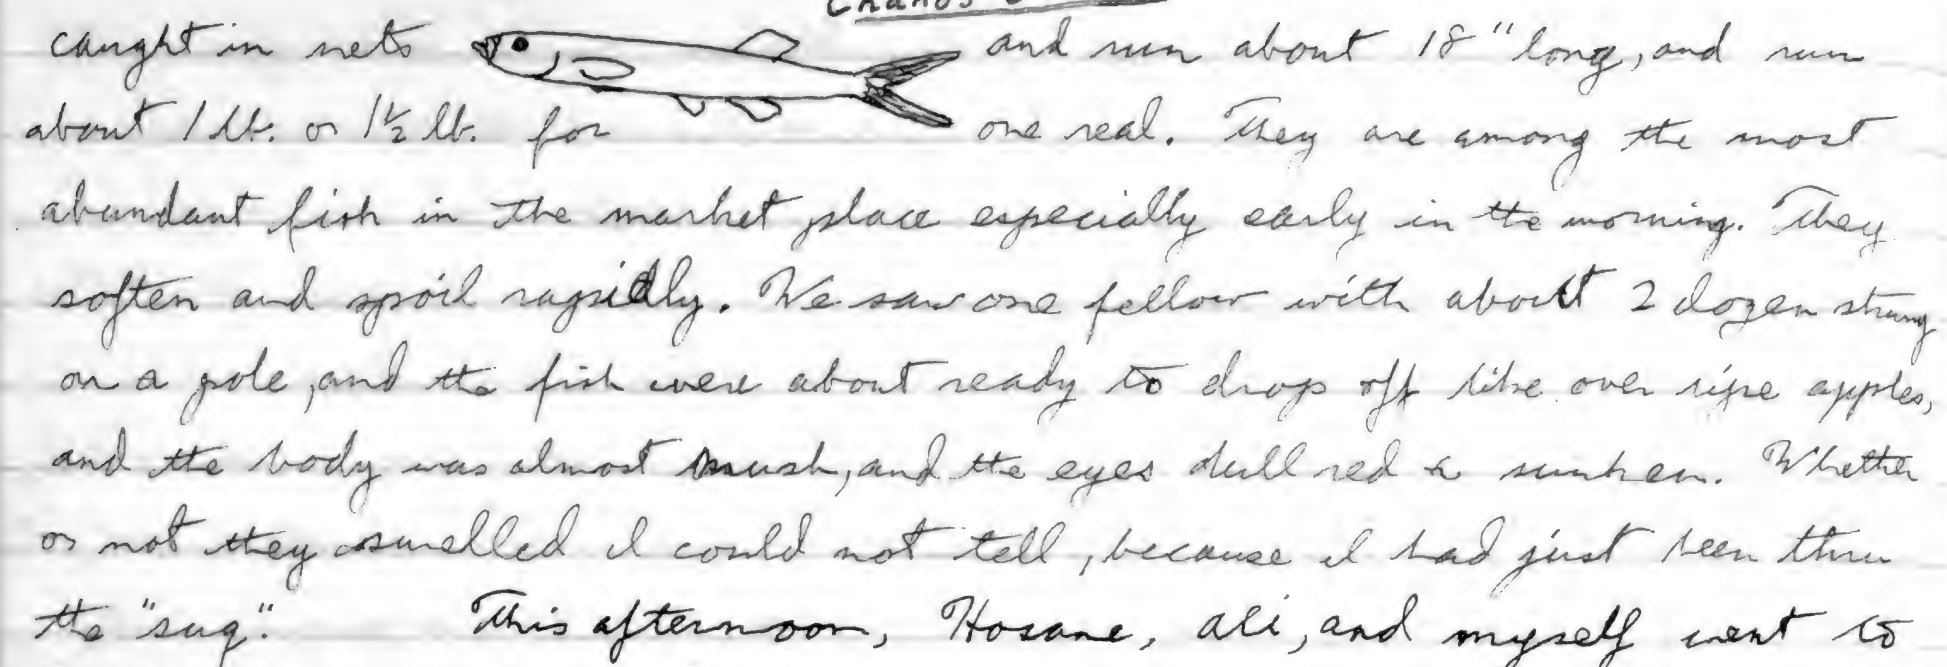 Chanos
caught in nets and run about 18" long, and run
about 1 lb. or 1½ lb. for one real. They are among the most
abundant fish in the market place especially early in the morning. They
soften and spoil rapidly. We saw one fellow with about 2 dozen strung
on a pole, and the fish were about ready to drop off like over ripe apples,
and the body was almost mush, and the eyes dull red & sunken. Whether
or not they smelled I could not tell, because I had just been thru
the "suq". This afternoon, Hosane, Ali, and myself went to